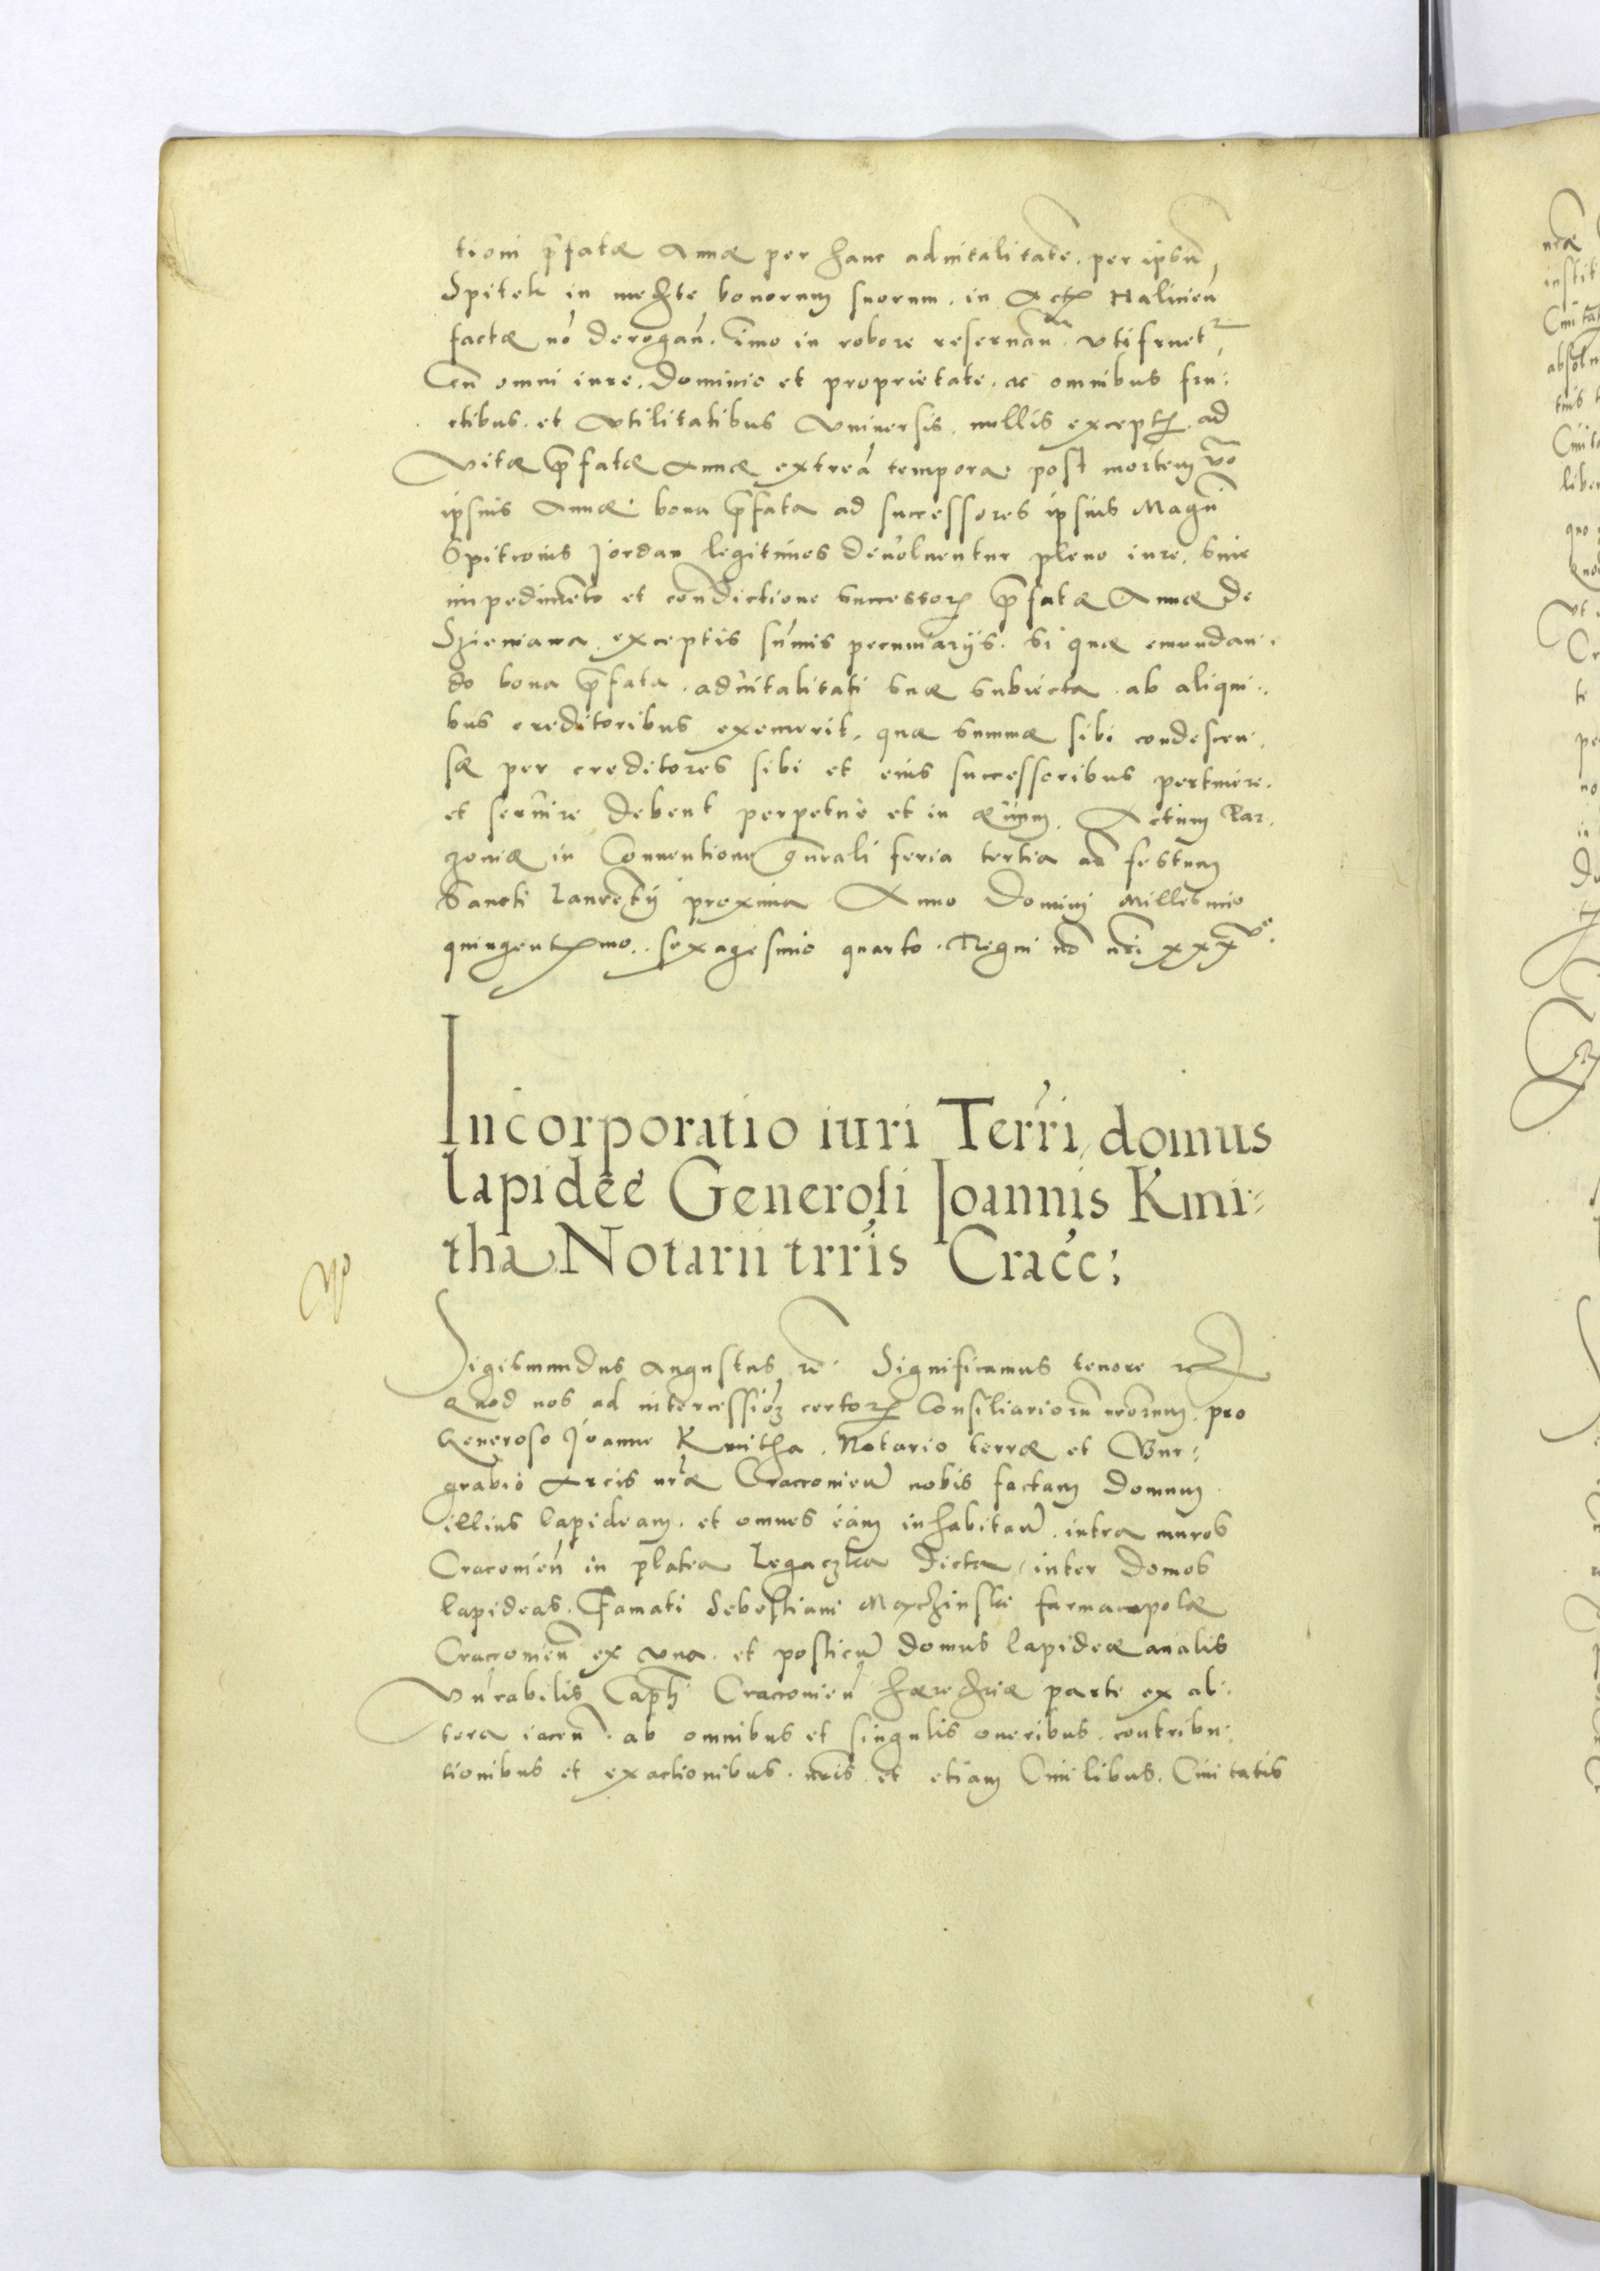 tioni p̄fatæ Annæ per hanc advitalitatē. per ipsū
Spitek in medte bonorum suorum. in Actis Halicień
factæ nō derogań. imo in robore reservań. Utifruet̄
Cū omni iure. Dominio et proprietate. ac omnibus fru:
ctibus. et Utilitatibus Universis. nullis exceptis. ad
Vitæ p̄fatæ Annæ extrēa tempora. post mortem vō
ipsius Annæ. bona p̄fata ad successores ipsius Magn̄
Spitconis Jordan legitimos devolventur pleno iure. sine
impedimēto et cōndictione successorz p̄fatæ Annæ de
exceptis sūmis pecuniarijs. Si quæ emundan:
do bona p̄fata. advitalitati suæ subiecta. ab aliqui:
bus creditoribus exemerit. quæ summæ sibi condescen:
sæ per creditores sibi et eius successoribus pertinere.
et servire debent perpetuo et in ævum. Actum Par:
zoviæ in Conventione gn̄rali feria tertia ad festum
Sancti Laurētij proxima Anno Domini Millesimo
quingentesimo. sexagesimo quarto. Regni vō nr̄i xxxvᵒ.
Incorporatio iuri Terr̄i, domus
lapidee Generosi Joannis Kmi:
tha Notarii trr̄is Cracc;
Sigismundus Augustus rē. Significamus tenore rc
Quod nos ad intercessionē certorz Consiliariorū nrōrum. pro
Generoso Joanne Kmitha. Notario terræ et Bur:
grabio Arcis nræ Cracovień nobis factam Domum
illius lapideam. et omnes eām inhabitań. intra muros
Cracovień in platea Legaczka dicta. inter Domos
lapideas. Famati Sebestiani farmacopolæ
Cracovień ex una. et posticū domus lapideæ
Vn̄rabilis Caplī Cracovień parte ex al:
tera iaceń. ab omnibus et singulis oneribus. contribu:
tionibus et exactionibus. nrīs et etiam Civilibus. Civitatis